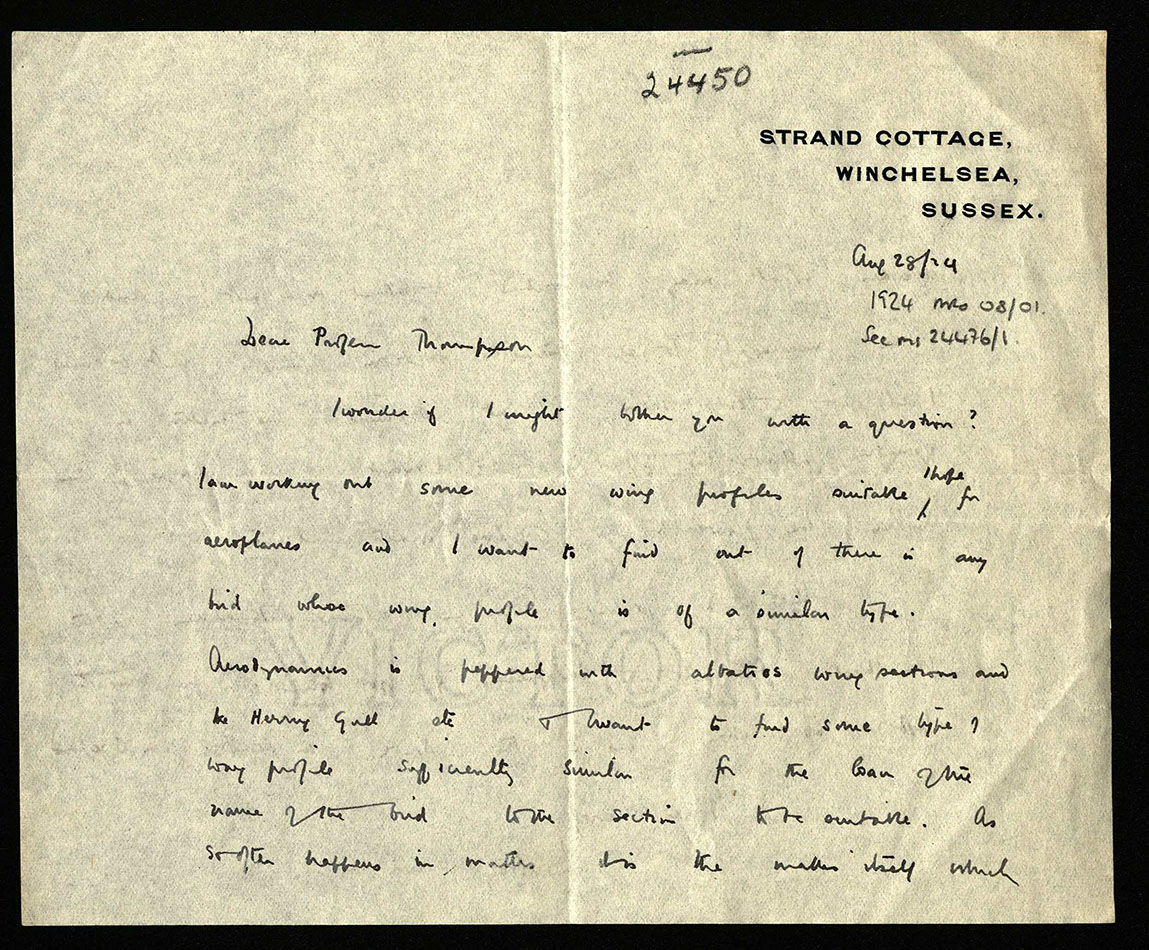 24450
STRAND COTTAGE,
WINCHELSEA,
SUSSEX.
Aug 28/24
1924 08/01.
See ms 24476/1.
Dear Professor Thompson
I wonder if I might bother you with a question?
I am working out some new wing profiles suitable I hope for
aeroplanes and I want to find out if there is any
bird whose wing profile is of a similar type.
Aerodynamics is peppered with albatros wing sections and
the Herring Gull etc & I want to find some type of
wing profile sufficiently similar for the loan of the
name of the bird to the section to be suitable. As
so often happens in maths it is the maths itself which